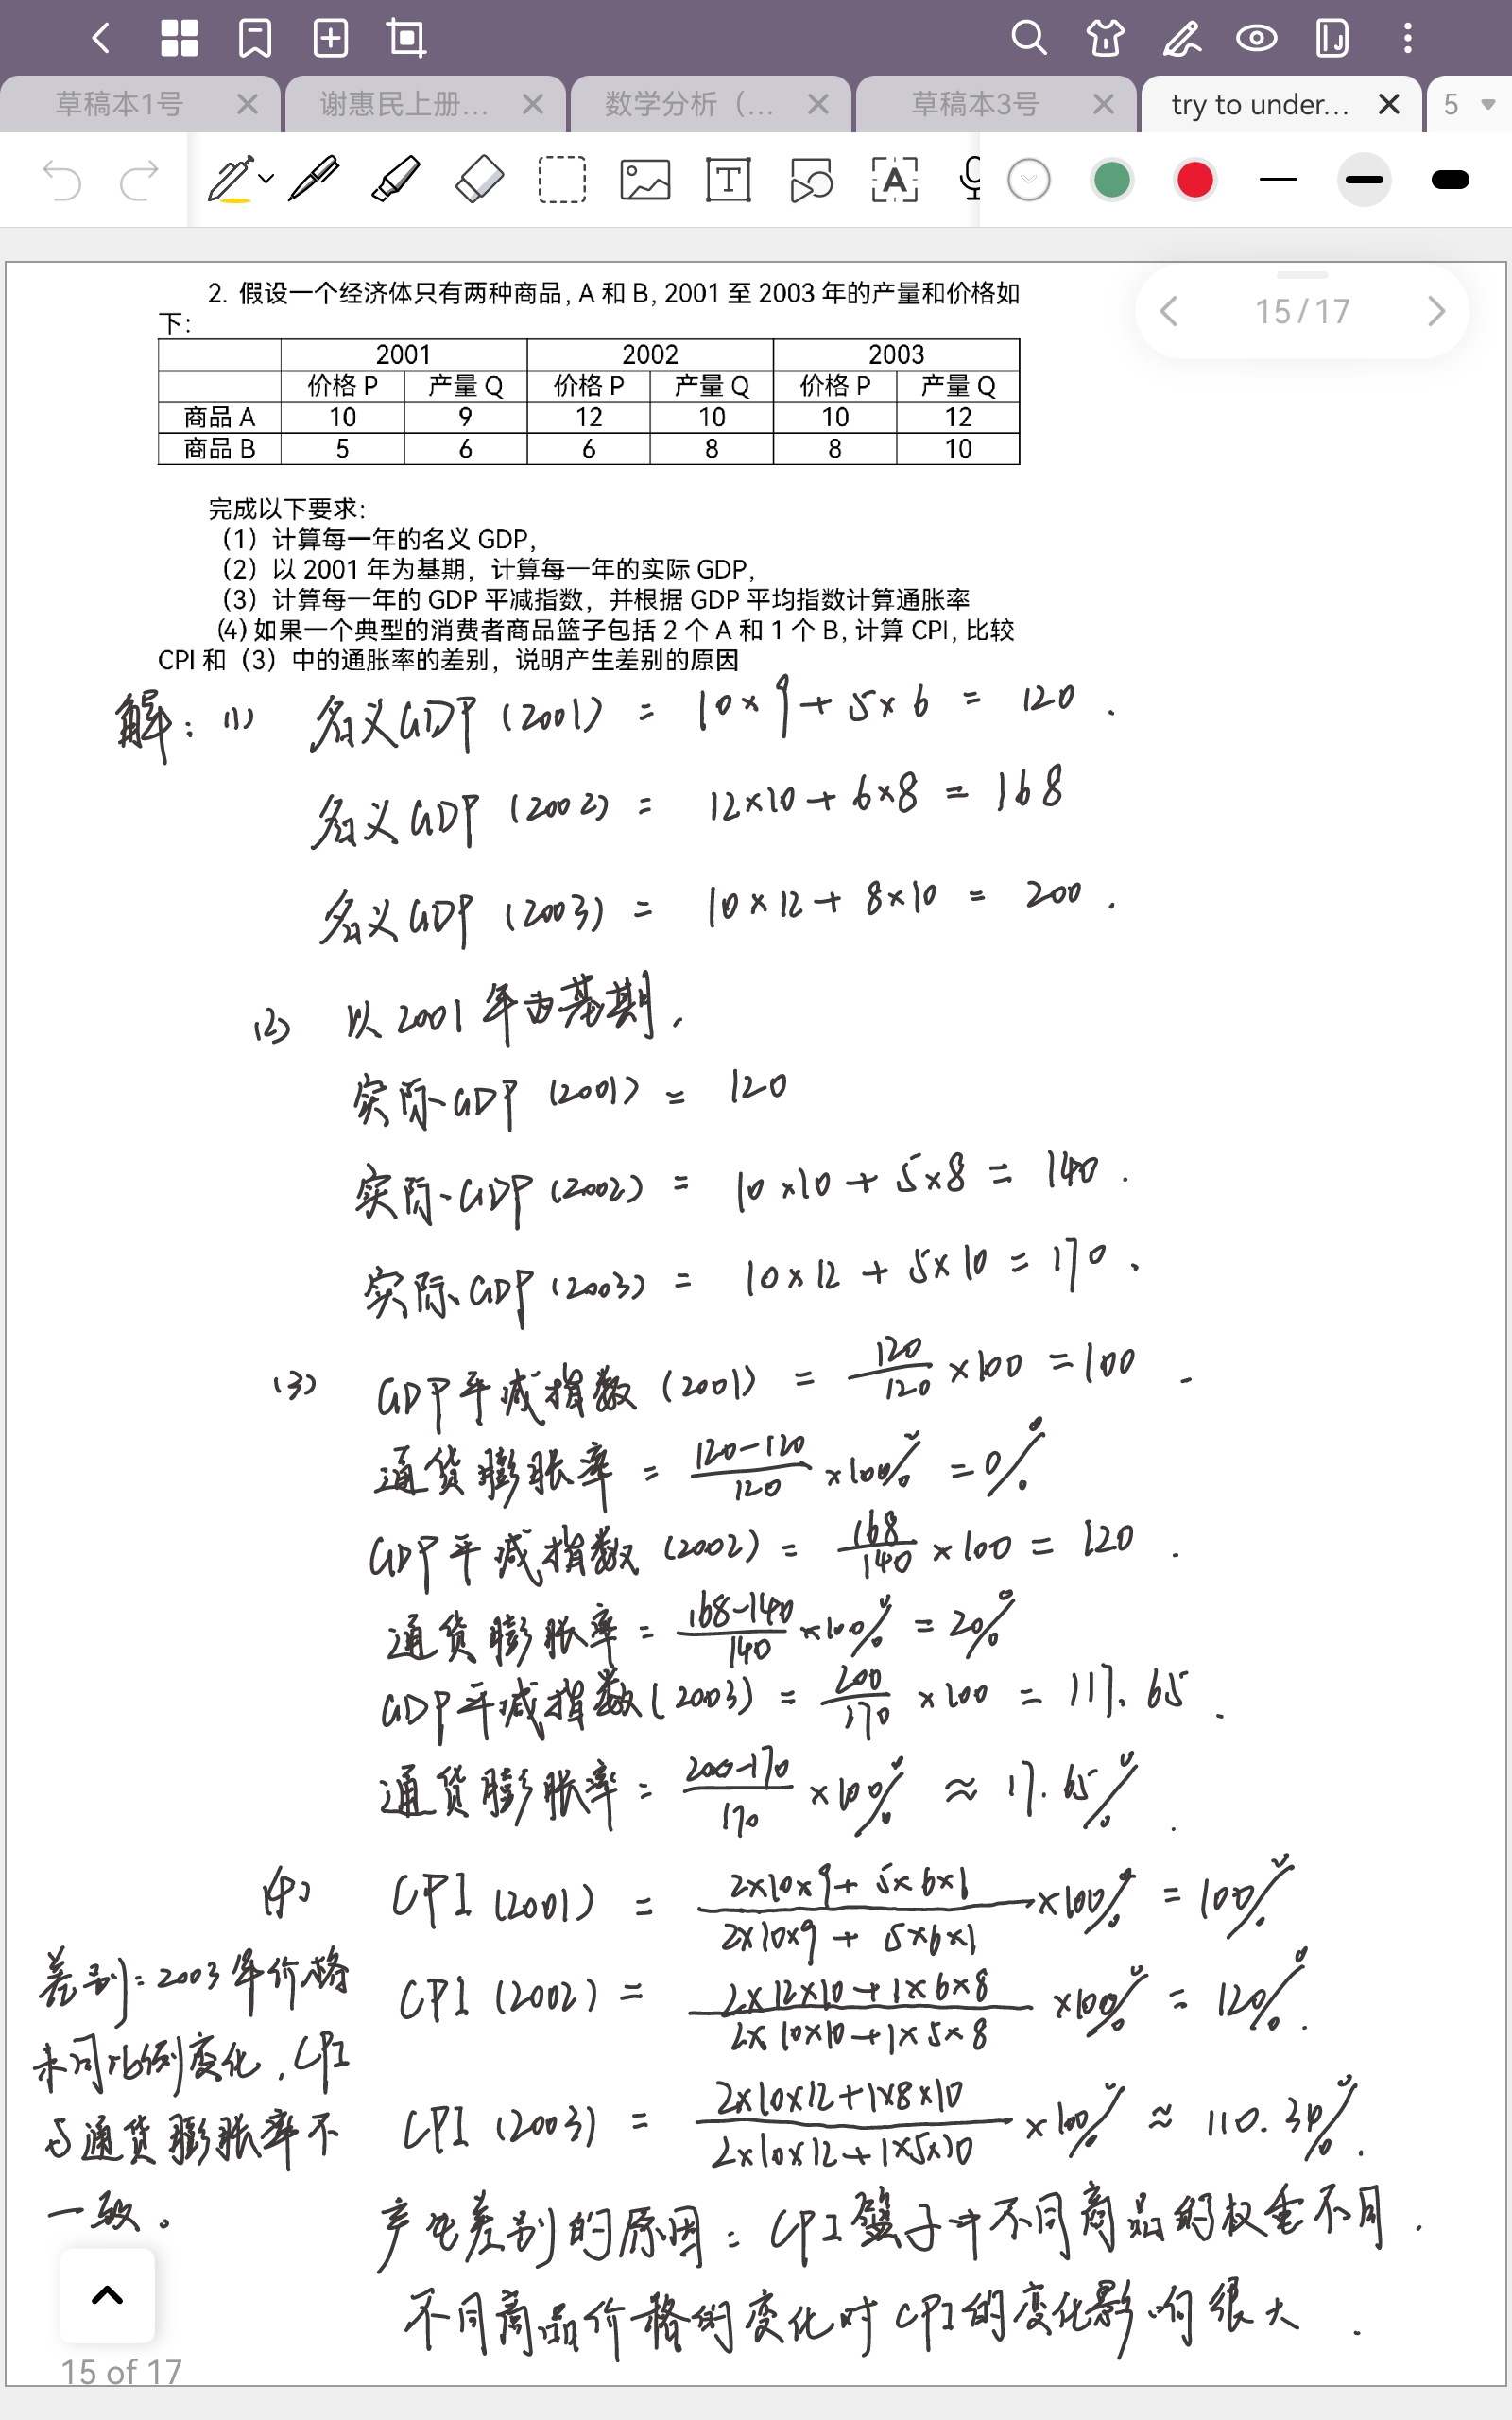 草稿本1号
谢惠民上册...
数学分析（...
草稿本3号
try to under...
5
15/17
2. 假设一个经济体只有两种商品, A 和 B, 2001 至 2003 年的产量和价格如
下:
2001 2002 2003
价格 P 产量 Q 价格 P 产量 Q 价格 P 产量 Q
商品 A 10 9 12 10 10 12
商品 B 5 6 6 8 8 10
完成以下要求:
（1）计算每一年的名义 GDP,
（2）以 2001 年为基期，计算每一年的实际 GDP,
（3）计算每一年的 GDP 平减指数，并根据 GDP 平均指数计算通胀率
（4）如果一个典型的消费者商品篮子包括 2 个 A 和 1 个 B, 计算 CPI, 比较
CPI 和（3）中的通胀率的差别，说明产生差别的原因
解: (1) 名义GDP (2001) = 10×9+5×6 = 120 .
名义GDP (2002) = 12×10+6×8 = 168
名义GDP (2003) = 10×12+8×10 = 200 .
(2) 以2001年为基期.
实际GDP (2001) = 120
实际GDP (2002) = 10×10+5×8 = 140 .
实际GDP (2003) = 10×12+5×10 = 170 .
(3) GDP平减指数 (2001) = 120/120 ×100 = 100 .
通货膨胀率 = (120-120)/120 ×100% = 0%
GDP平减指数 (2002) = 168/140 ×100 = 120 .
通货膨胀率 = (168-140)/140 ×100% = 20%
GDP平减指数 (2003) = 200/170 ×100 = 117.65 .
通货膨胀率 = (200-170)/170 ×100% ≈ 17.65% .
(4) CPI (2001) = (2×10×9+5×6×1)/(2×10×9+5×6×1) ×100% = 100%
CPI (2002) = (2×12×10+1×6×8)/(2×10×10+1×5×8) ×100% = 120% .
CPI (2003) = (2×10×12+1×8×10)/(2×10×12+1×5×10) ×100% ≈ 110.34% .
差别: 2003年价格
未同比例变化, CPI
与通货膨胀率不
一致。
产生差别的原因: CPI篮子中不同商品的权重不同.
不同商品价格的变化对CPI的变化影响很大 .
15 of 17